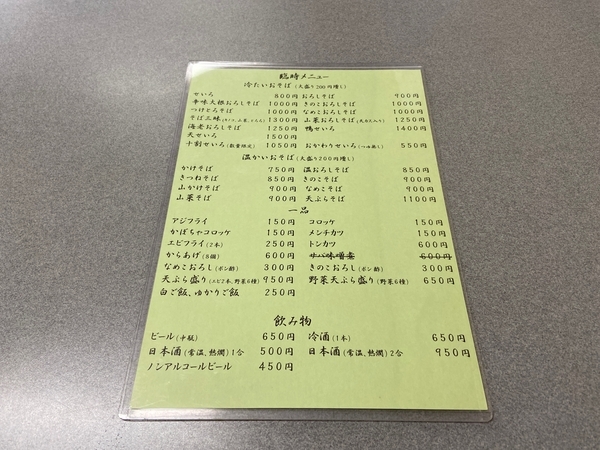 臨時メニュー
冷たいおそば (大盛り200円増し)
せいろ 800円 おろしそば 900円
辛味大根おろしそば 1000円 きのこおろしそば 1000円
つけとろそば 1000円 なめこおろしそば 1000円
そば三昧 1300円 山菜おろしそば (天カス入り) 1250円
海老おろしそば 1250円 鴨せいろ 1400円
天せいろ 1500円
十割せいろ (数量限定) 1050円 おかわりせいろ (つゆ無し) 550円
温かいおそば (大盛り200円増し)
かけそば 750円 温おろしそば 850円
きつねそば 850円 きのこそば 900円
山かけそば 900円 なめこそば 900円
山菜そば 900円 天ぷらそば 1100円
一品
アジフライ 150円 コロッケ 150円
かぼちゃコロッケ 150円 メンチカツ 150円
エビフライ (2本) 250円 トンカツ 600円
からあげ (8個) 600円 サバ味噌煮 600円
なめこおろし (ポン酢) 300円 きのこおろし (ポン酢) 300円
天ぷら盛り (エビ2本、野菜6種) 950円 野菜天ぷら盛り (野菜6種) 650円
白ご飯、ゆかりご飯 250円
飲み物
ビール (中瓶) 650円 冷酒 (1本) 650円
日本酒 (常温、熱燗) 1合 500円 日本酒 (常温、熱燗) 2合 950円
ノンアルコールビール 450円